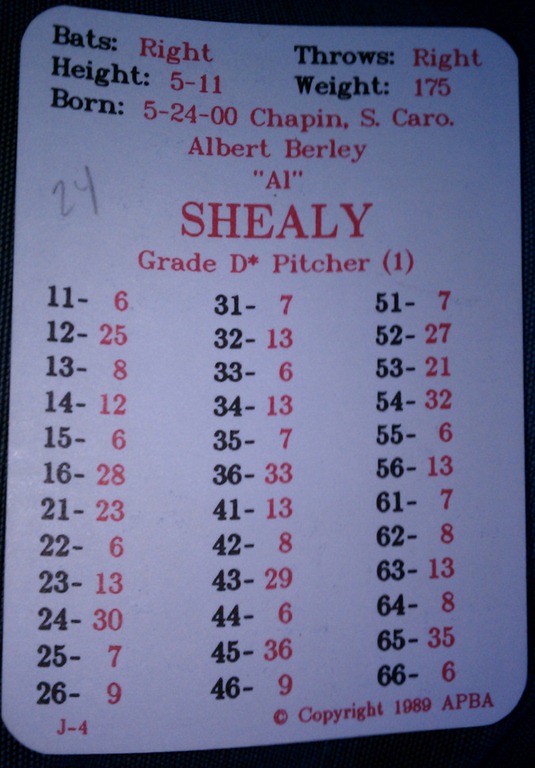 Bats: Right Throws: Right
Height: 5-11 Weight: 175
Born: 5-24-00 Chapin, S. Caro.
Albert Berley
"Al"
24
SHEALY
Grade D* Pitcher (1)
11- 6 31- 7 51- 7
12- 25 32- 13 52- 27
13- 8 33- 6 53- 21
14- 12 34- 13 54- 32
15- 6 35- 7 55- 6
16- 28 36- 33 56- 13
21- 23 41- 13 61- 7
22- 6 42- 8 62- 8
23- 13 43- 29 63- 13
24- 30 44- 6 64- 8
25- 7 45- 36 65- 35
26- 9 46- 9 66- 6
J-4 © Copyright 1989 APBA